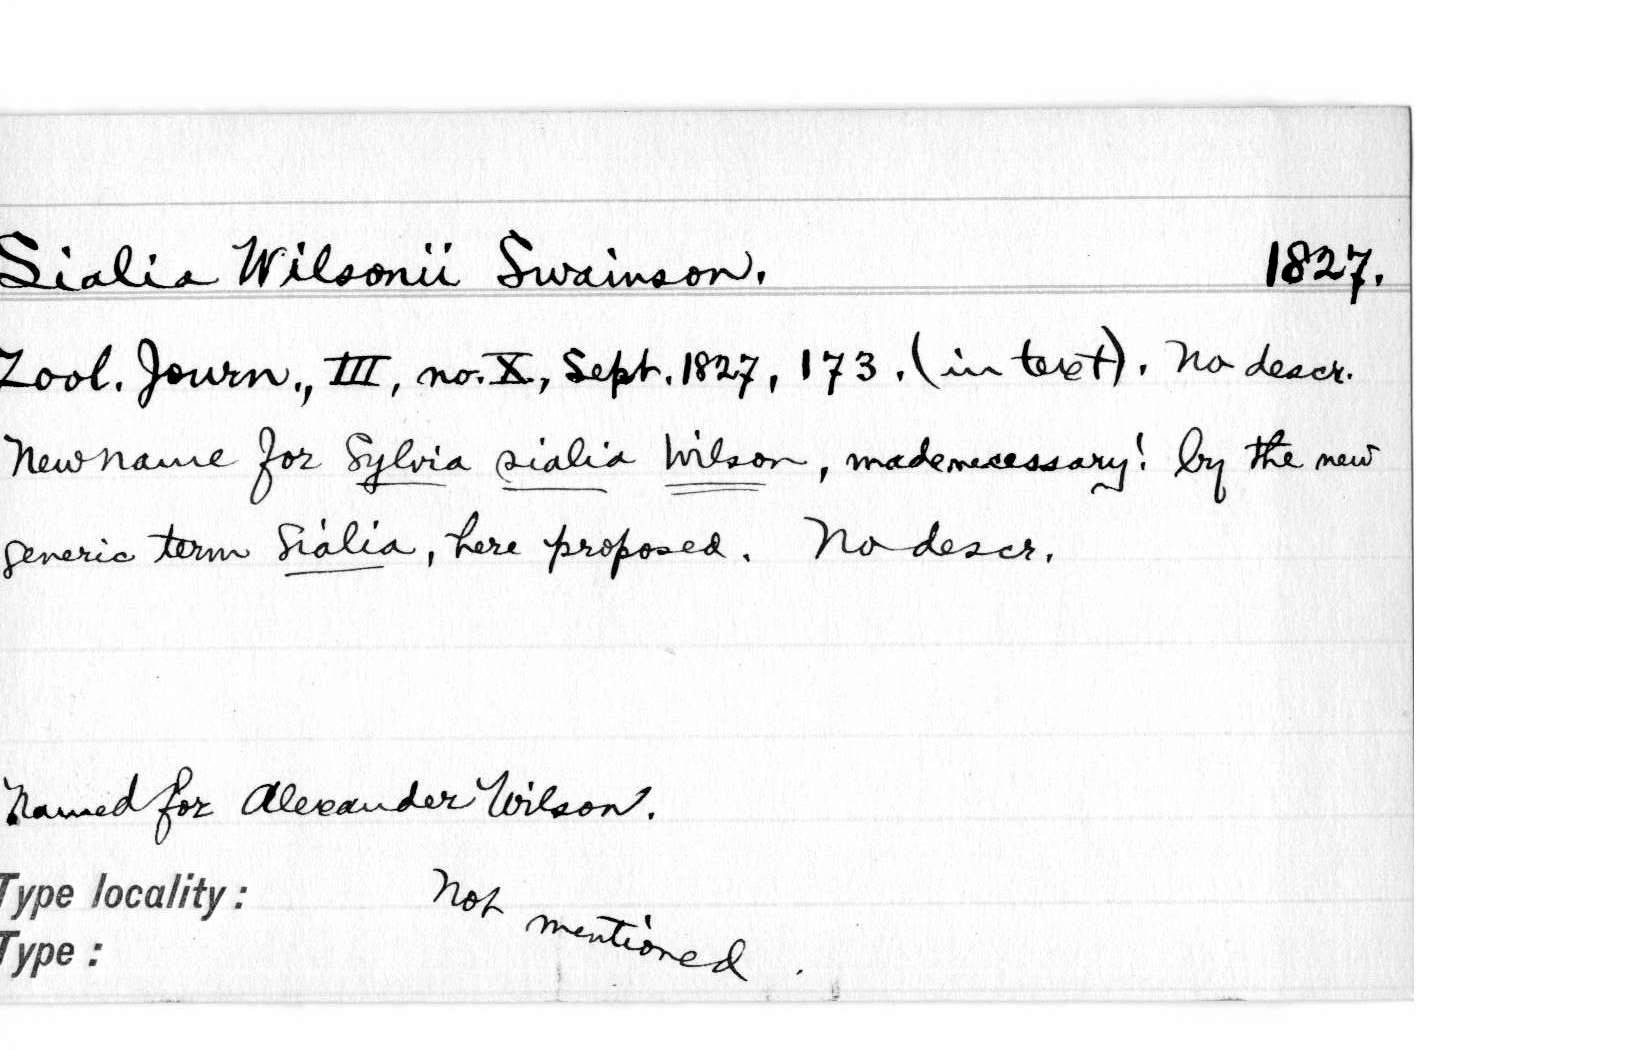 Sialia Wilsonii Swainson. 1827.
Zool. Journ., III, no. X, Sept. 1827, 173. (in text). No descr.
New name for Sylvia sialia Wilson, made necessary! by the new
generic term Sialia, here proposed. No descr.
Named for Alexander Wilson.
Type locality: Not
mentioned.
Type: